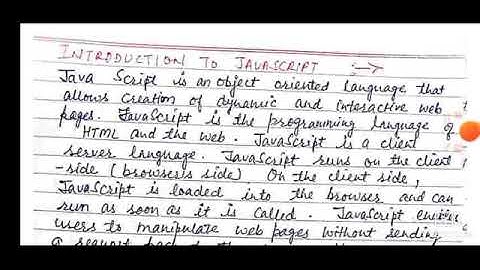 INTRODUCTION TO JAVASCRIPT :→
Java Script is an object oriented language that
allows creation of dynamic and interactive web
pages. JavaScript is the programming language of
HTML and the web. JavaScript is a client
server language. JavaScript runs on the client
-side (browser's side) On the client side,
JavaScript is loaded into the browser and can
run as soon as it is called. JavaScript
users to manipulate web pages without sending
a request back to the